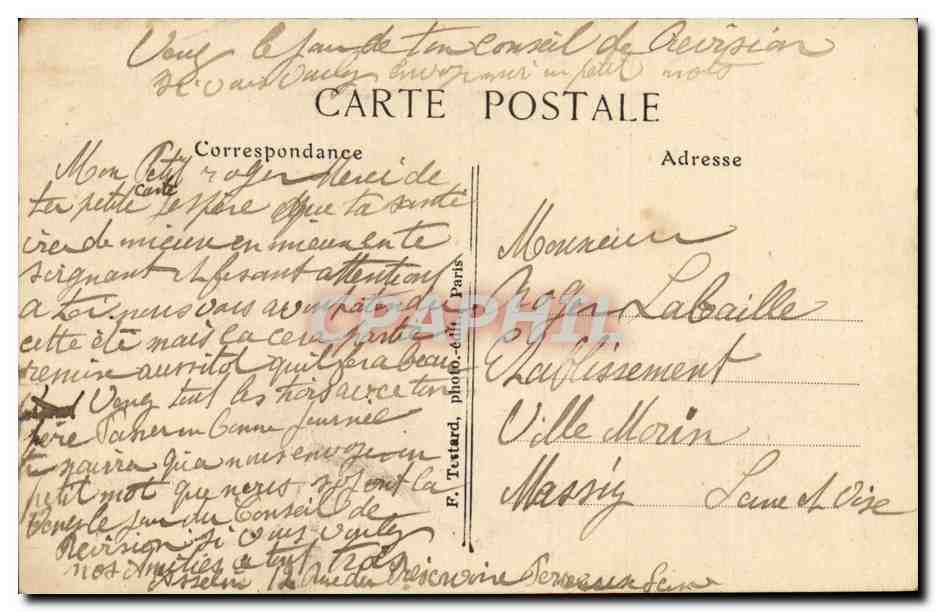 Venez le jour de ton Conseil de Revision
si vous voulez envoyer un petit mots
CARTE POSTALE
Correspondance
Adresse
Mon Petit roger Merci de
ta petite carte J'espère que ta santé
ira de mieux en mieux en te
soignant et fesant attention
a toi nous vous avons attendu
cette été mais la cera partie
remise aussitot quil fera beau
Venez tout les trois avec ton
père Passer un bonne Journée
qu a nous envoyer un
petit mot que nous soyont la
Venez le jour du Conseil de
Revision si vous voulez
nos Amities a tout trois
Asselin 12 Rue du Réservoire Perreux Seine
F. Testard, photo.-édit. Paris
CPAPHIL
Monsieur
Roger Labaille
Etablissement
Ville Morin
Massy Seine et Oise